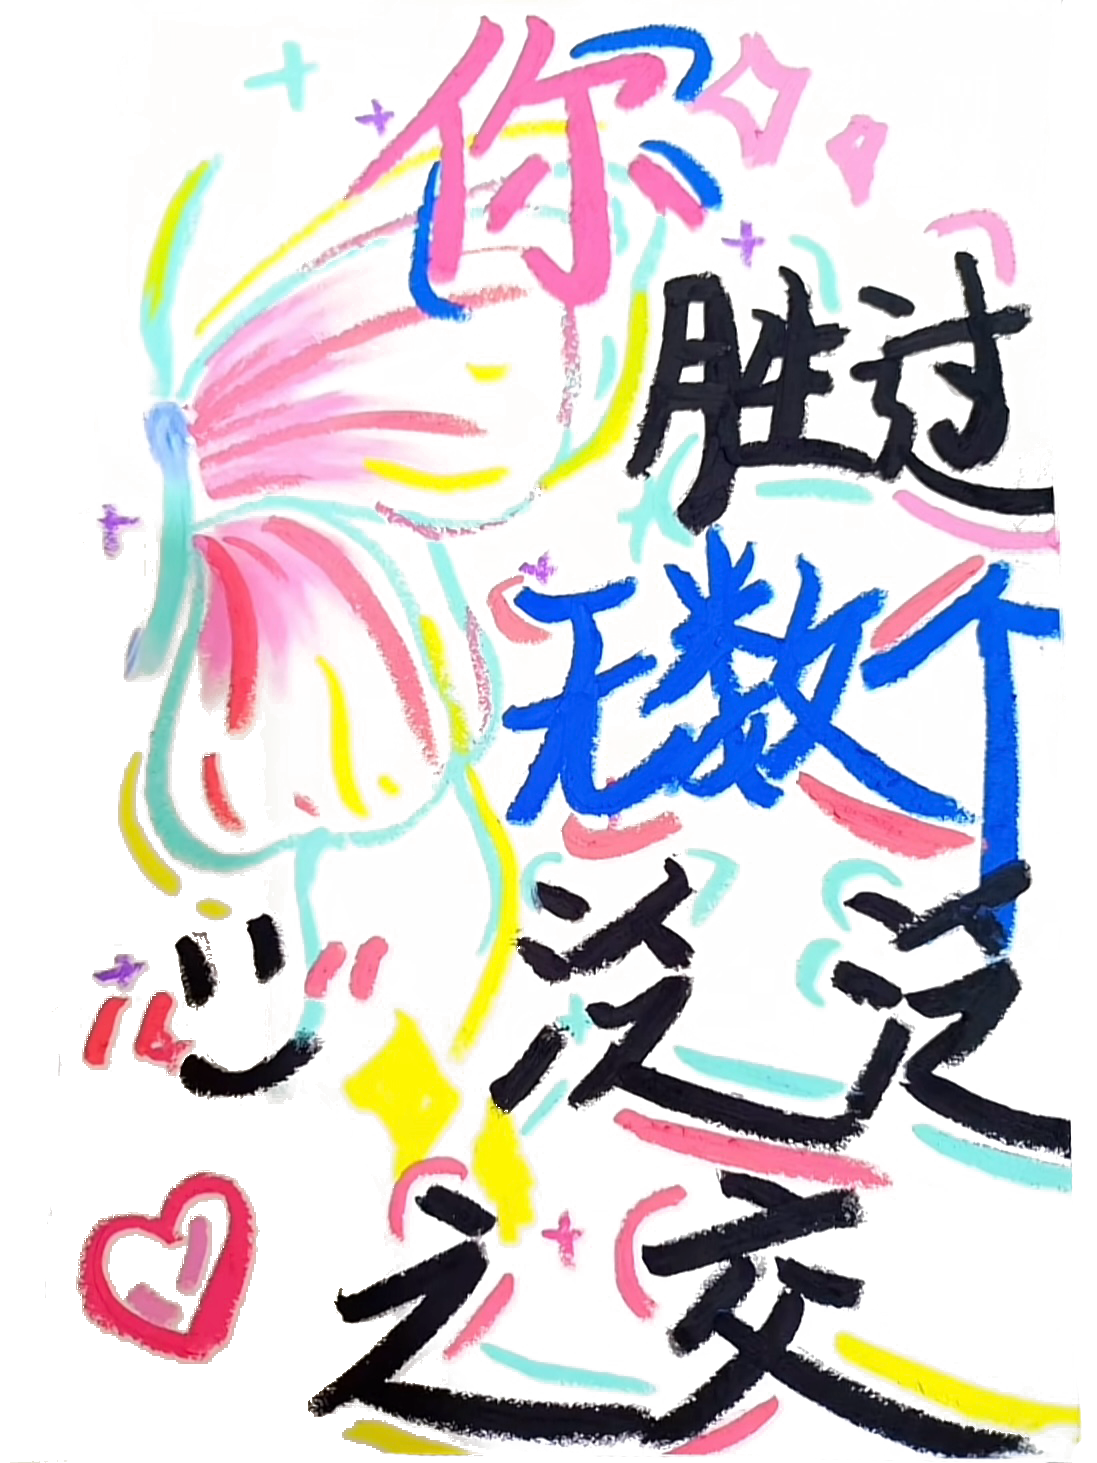 你
胜过
无数个
泛泛
之交